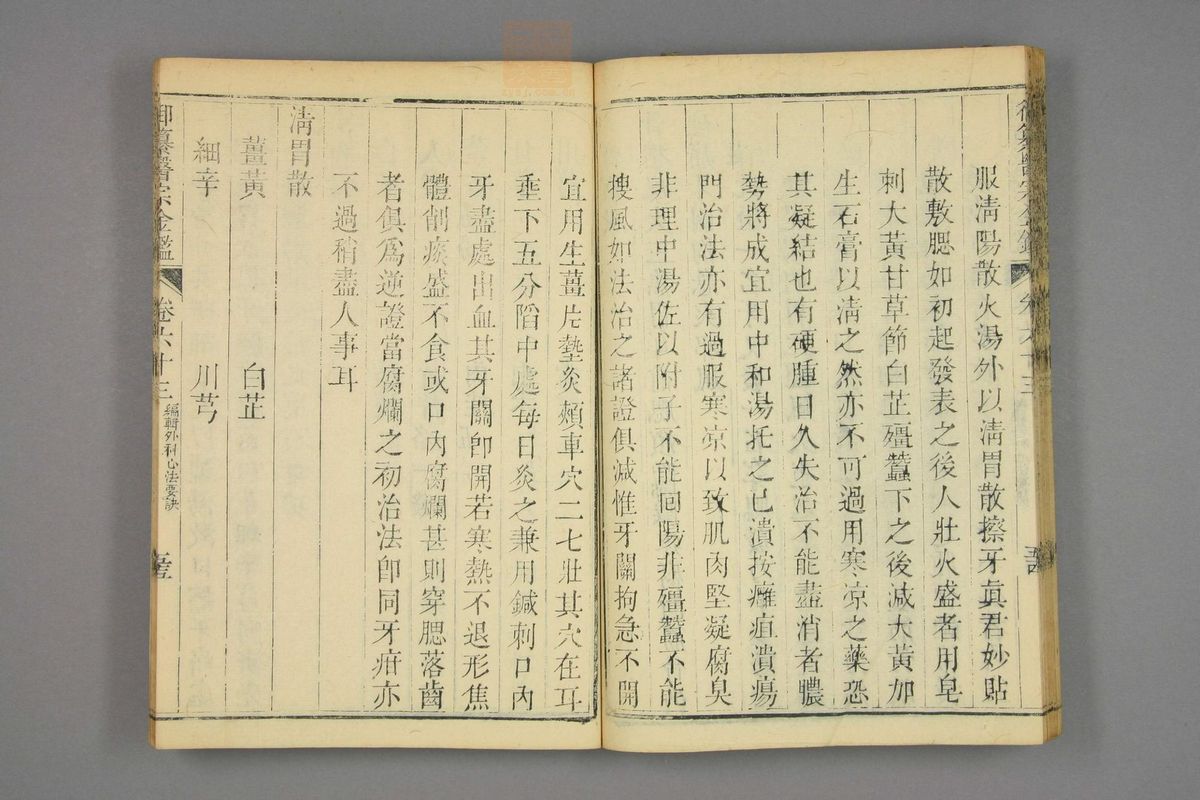 服淸陽散火湯外以淸胃散擦牙眞君妙貼
散敷腮如初起發表之後人壯火盛者用皂
刺大黃甘草節白芷殭蠶下之後減大黃加
生石膏以淸之然亦不可過用寒凉之藥恐
其凝結也有硬腫日久失治不能盡消者膿
勢將成宜用中和湯托之已潰按癰疽潰瘍
門治法亦有過服寒凉以致肌肉堅凝腐臭
非理中湯佐以附子不能回陽非殭蠶不能
搜風如法治之諸證俱減惟牙關拘急不開
宜用生薑片墊灸頰車穴二七壯其穴在耳
垂下五分陷中處每日灸之兼用鍼刺口內
牙盡處出血其牙關卽開若寒熱不退形焦
體削痰盛不食或口內腐爛甚則穿腮落齒
者俱爲逆證當腐爛之初治法卽同牙疳亦
不過稍盡人事耳
淸胃散
薑黃 白芷
細辛 川芎
御纂醫宗金鑑 卷六十三 編輯外科心法要訣